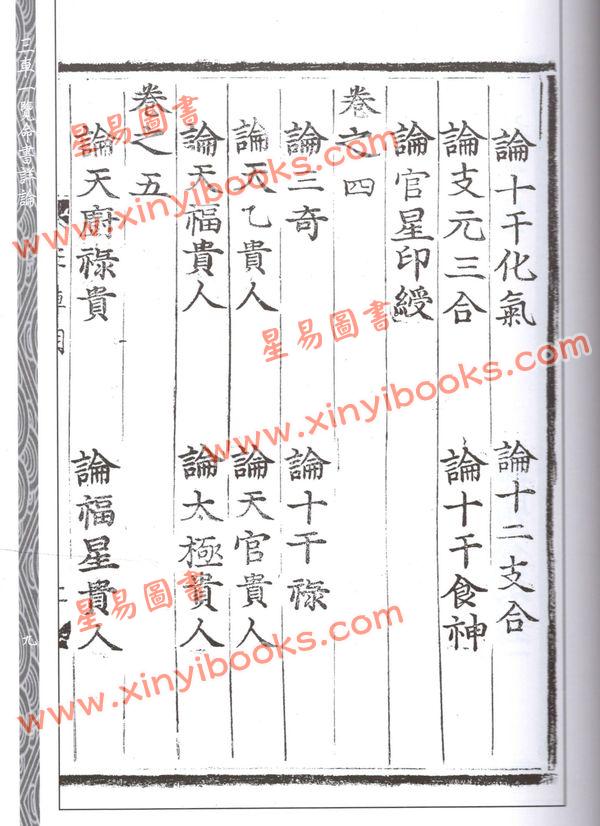 論十干化氣
論十二支合
論支元三合
論十干食神
論官星印綬
卷之四
論三奇
論十干祿
論天乙貴人
論天官貴人
論天福貴人
論太極貴人
卷之五
論天廚祿貴
論福星貴人
三車一覽命書詳論
九
星易圖書
www.xinyibooks.com
星易圖書
www.xinyibooks.com
星易圖書
www.xinyibooks.com